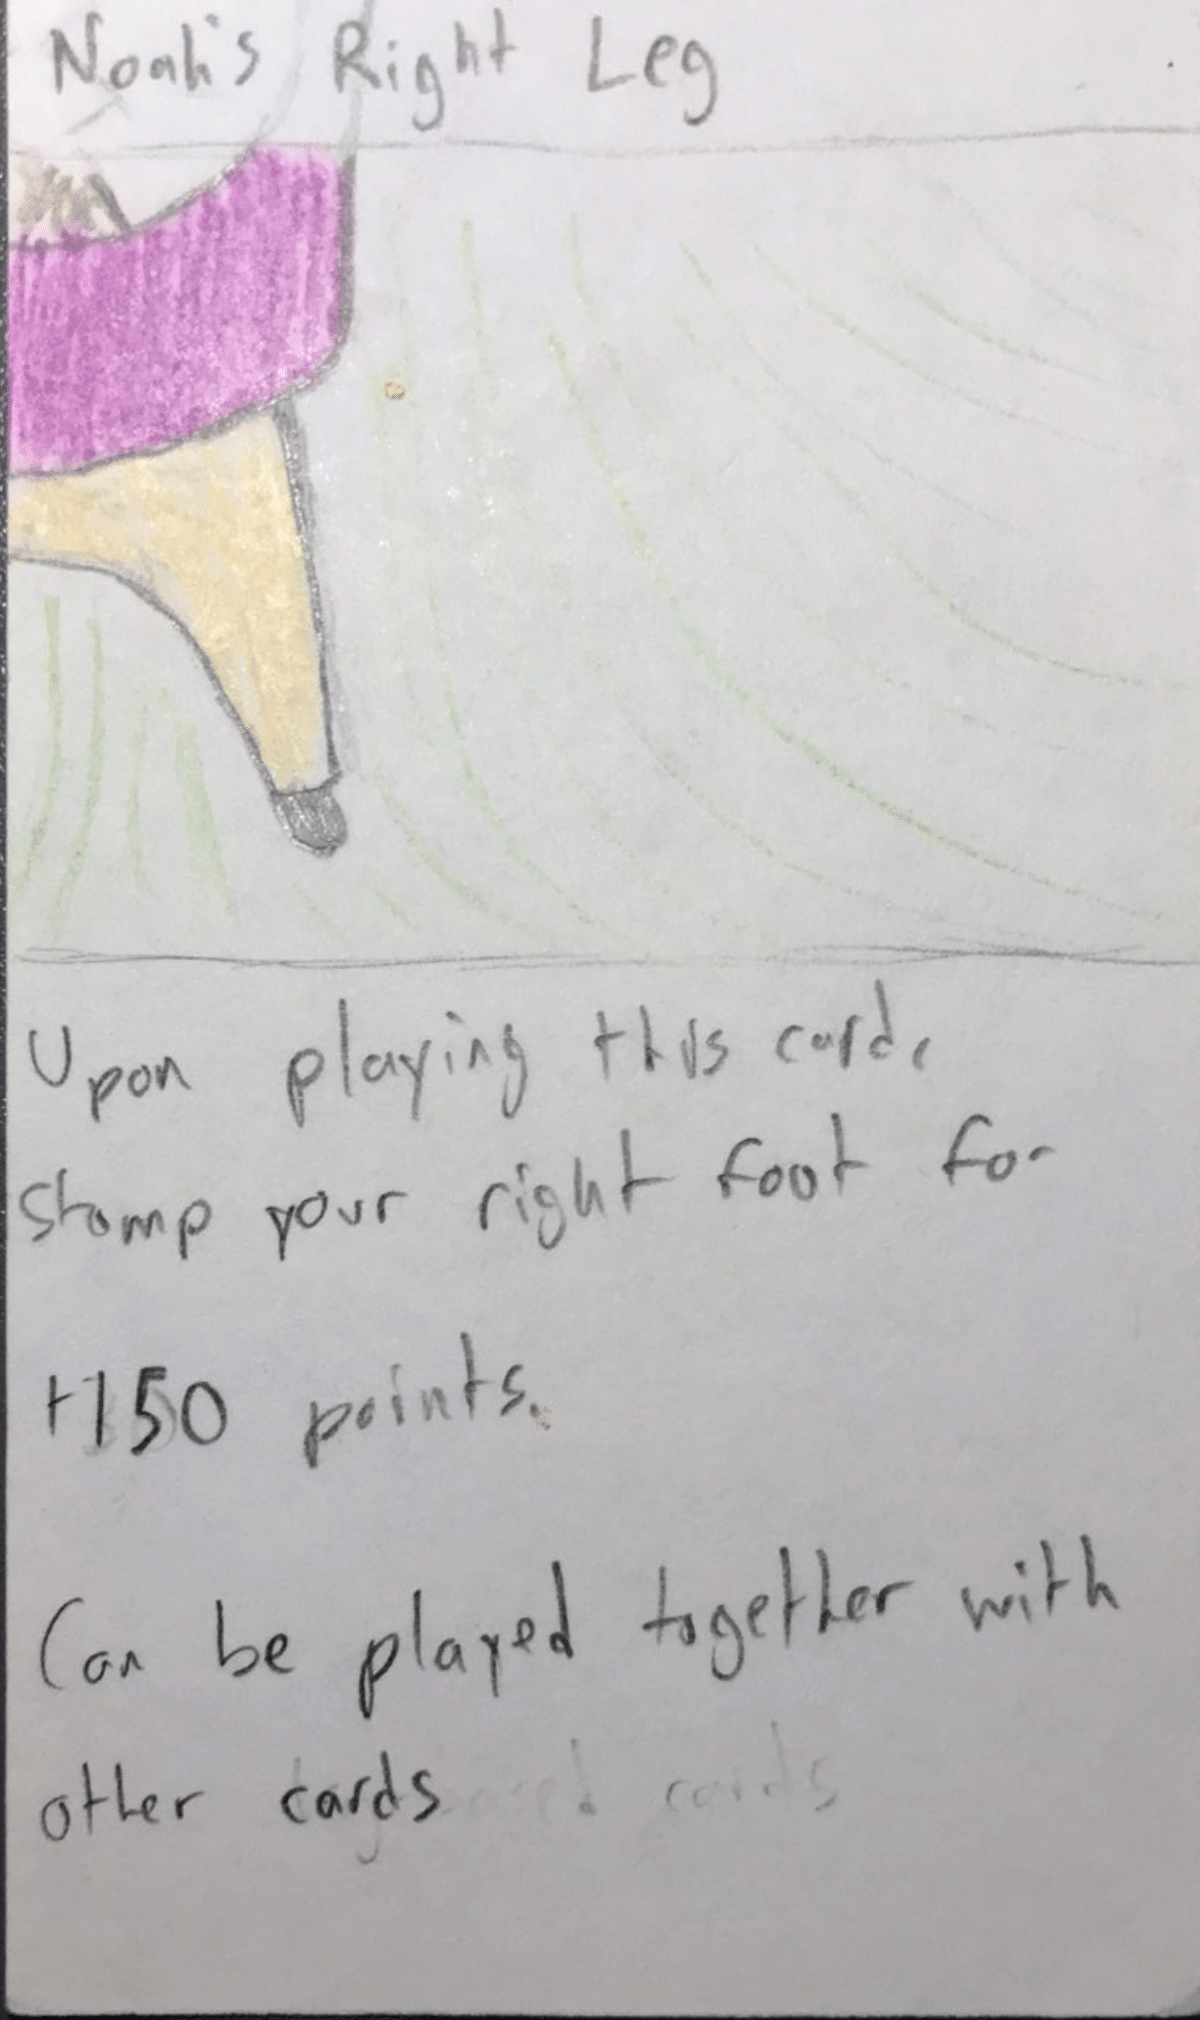 Noah's Right Leg
Upon playing this card,
stomp your right foot for
+150 points.
Can be played together with
other cards